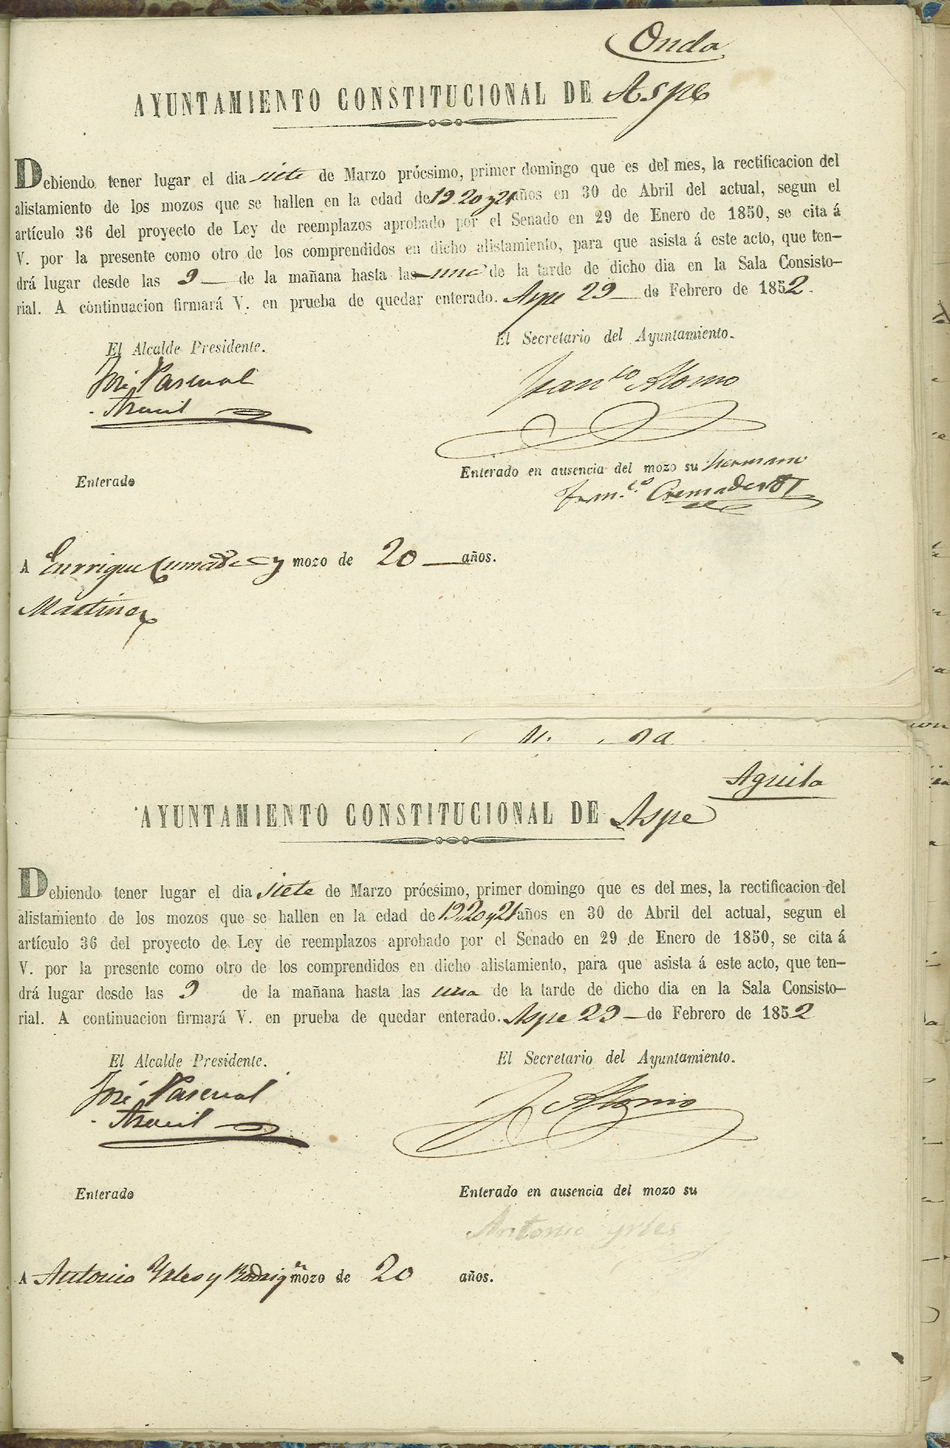 Onda
AYUNTAMIENTO CONSTITUCIONAL DE Aspe
Debiendo tener lugar el dia siete de Marzo prócsimo, primer domingo que es del mes, la rectificacion del
alistamiento de los mozos que se hallen en la edad de 19. 20 y 21 años en 30 de Abril del actual, segun el
artículo 36 del proyecto de Ley de reemplazos aprobado por el Senado en 29 de Enero de 1850, se cita á
V. por la presente como otro de los comprendidos en dicho alistamiento, para que asista á este acto, que ten-
drá lugar desde las 9 de la mañana hasta las una de la tarde de dicho dia en la Sala Consisto-
rial. A continuacion firmará V. en prueba de quedar enterado. Aspe 29 de Febrero de 1852.
El Alcalde Presidente. El Secretario del Ayuntamiento.
José Pascual Franco Alonso
Enterado Enterado en ausencia del mozo su hermano
Franco Cremades
A Enrrique Cremades y mozo de 20 años.
Martinez
Aguila
AYUNTAMIENTO CONSTITUCIONAL DE Aspe
Debiendo tener lugar el dia siete de Marzo prócsimo, primer domingo que es del mes, la rectificacion del
alistamiento de los mozos que se hallen en la edad de 19. 20 y 21 años en 30 de Abril del actual, segun el
artículo 36 del proyecto de Ley de reemplazos aprobado por el Senado en 29 de Enero de 1850, se cita á
V. por la presente como otro de los comprendidos en dicho alistamiento, para que asista á este acto, que ten-
drá lugar desde las 9 de la mañana hasta las una de la tarde de dicho dia en la Sala Consisto-
rial. A continuacion firmará V. en prueba de quedar enterado. Aspe 29 de Febrero de 1852
El Alcalde Presidente. El Secretario del Ayuntamiento.
José Pascual F Alonso
Enterado Enterado en ausencia del mozo su
Antonio Yrles
A Antonio Yrles y Rodrigz mozo de 20 años.